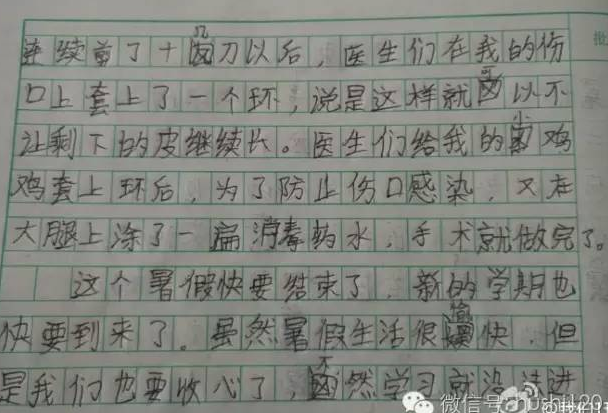 连续剪了十几刀以后，医生们在我的伤
口上套上了一个环，说是这样就可以不
让剩下的皮继续长。医生们给我的小鸡
鸡套上环后，为了防止伤口感染，又在
大腿上涂了一扁消毒药水，手术就做完了。
这个暑假快要结束了，新的学期也
快要到来了。虽然暑假生活很愉快，但
是我们也要收心了，不然学习就没法进
微信号